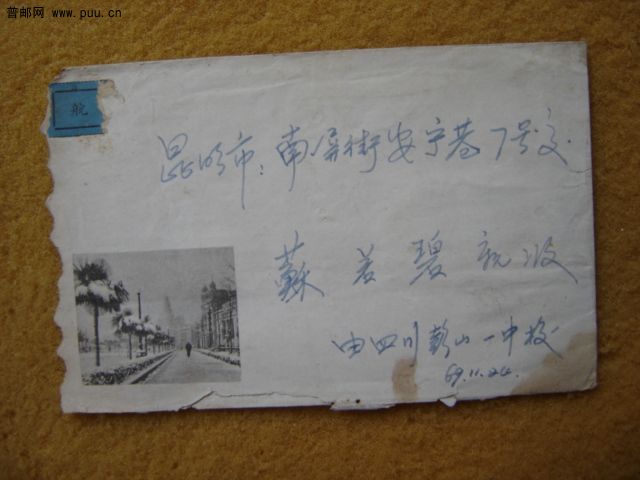 普邮网 www.puu.cn
航
昆明市:南屏街安宁巷7号交
蘇若碧親收
由四川彭山一中校
69.11.24.